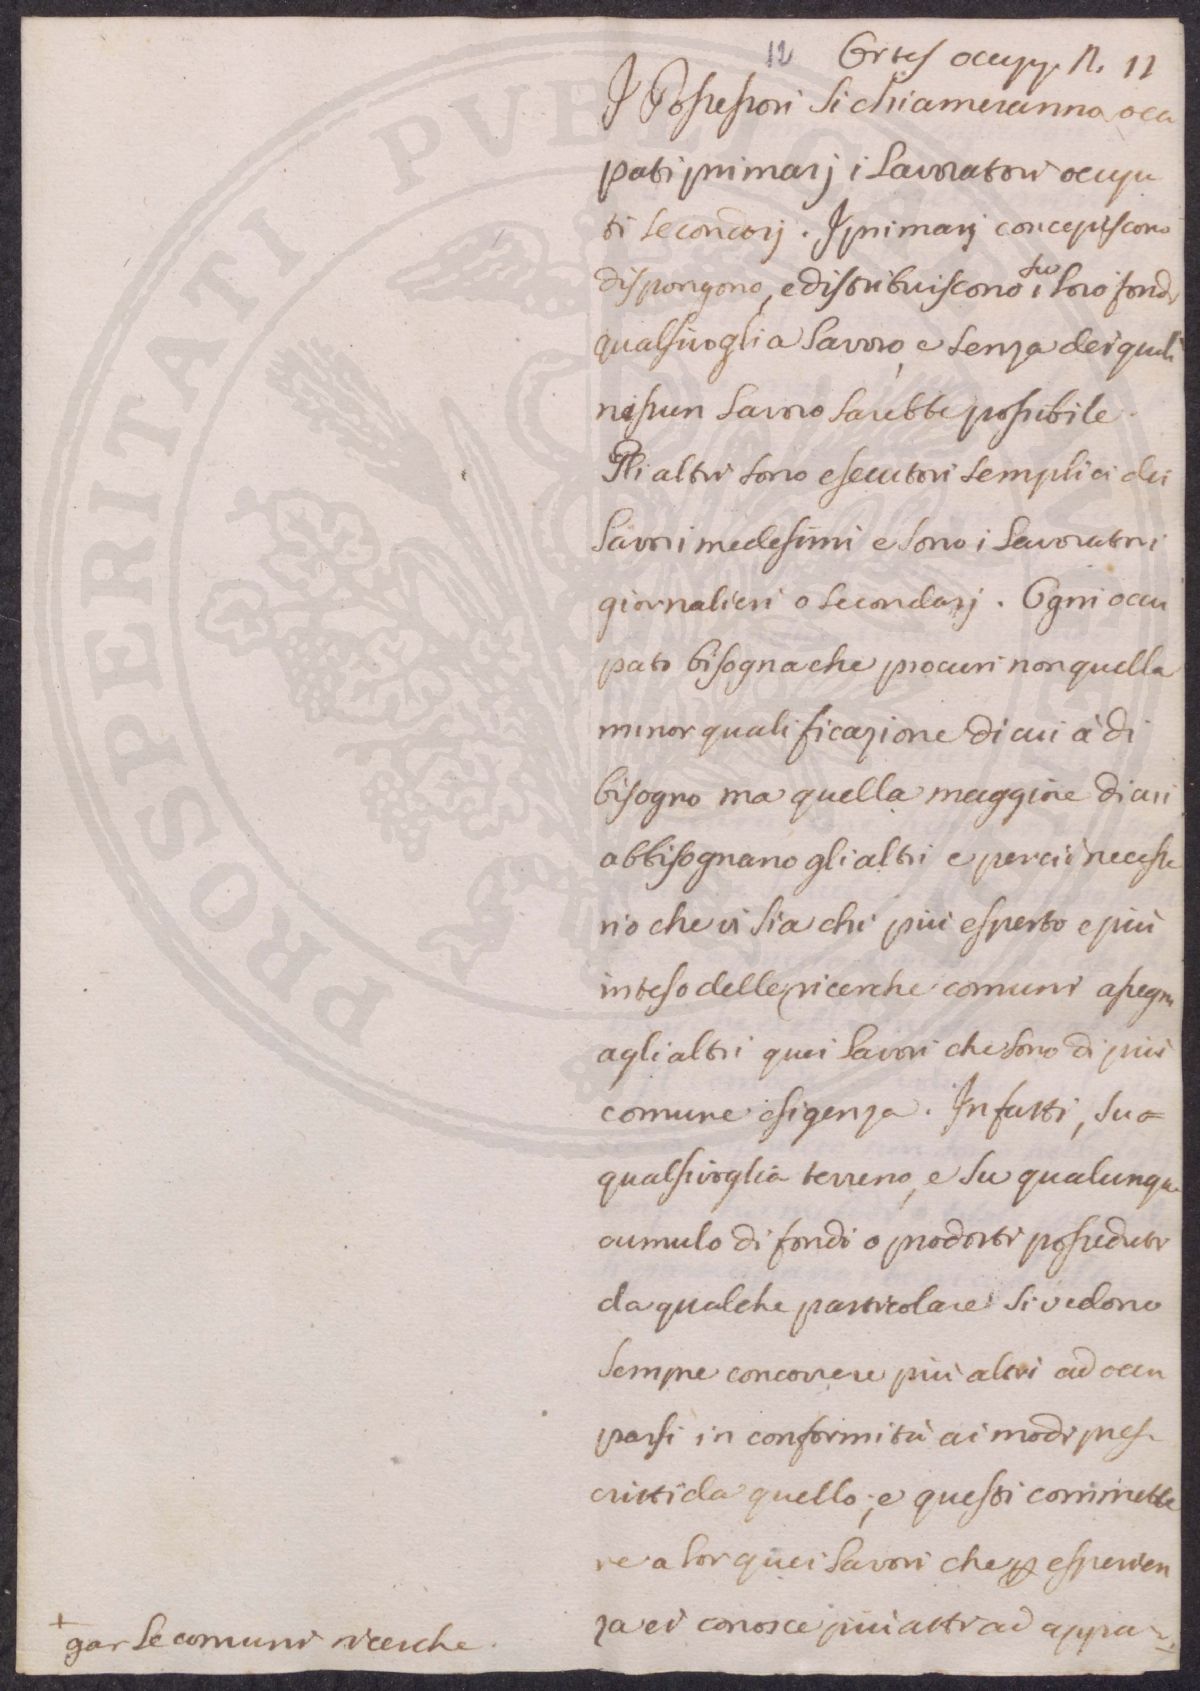 12 Ortes occup. N. 11
I Possessori si chiameranno occu
pati primarj i Lavoratori occupa
ti secondarj. I primarj concepiscono
dispongono, e distribuiscono su i loro fondi
qualsivoglia lavoro, e senza dei quali
nissun lavoro sarebbe possibile.
Gli altri sono esecutori semplici dei
lavori medesimi e sono i Lavoratori
giornalieri o secondarj. Ogni occu
pato bisogna che procuri non quella
minor qualificazione di cui à di
bisogno ma quella maggiore di cui
abbisognano gli altri e perciò necessa
rio che vi sia chi più esperto e più
inteso delle ricerche comuni assegni
agli altri quei lavori che sono di più
comune esigenza. Infatti, su
qualsivoglia terreno, e su qualunque
cumulo di fondi o prodotti posseduti
da qualche particolare si vedono
sempre concorrere più altri ad occu
parsi in conformità ai modi pres
critti da quello; e questi commette
re a lor quei lavori che per esperien
za ei conosce più atti ad appa
+
gar le comuni ricerche.
PROSPERITATI PVBLICAE